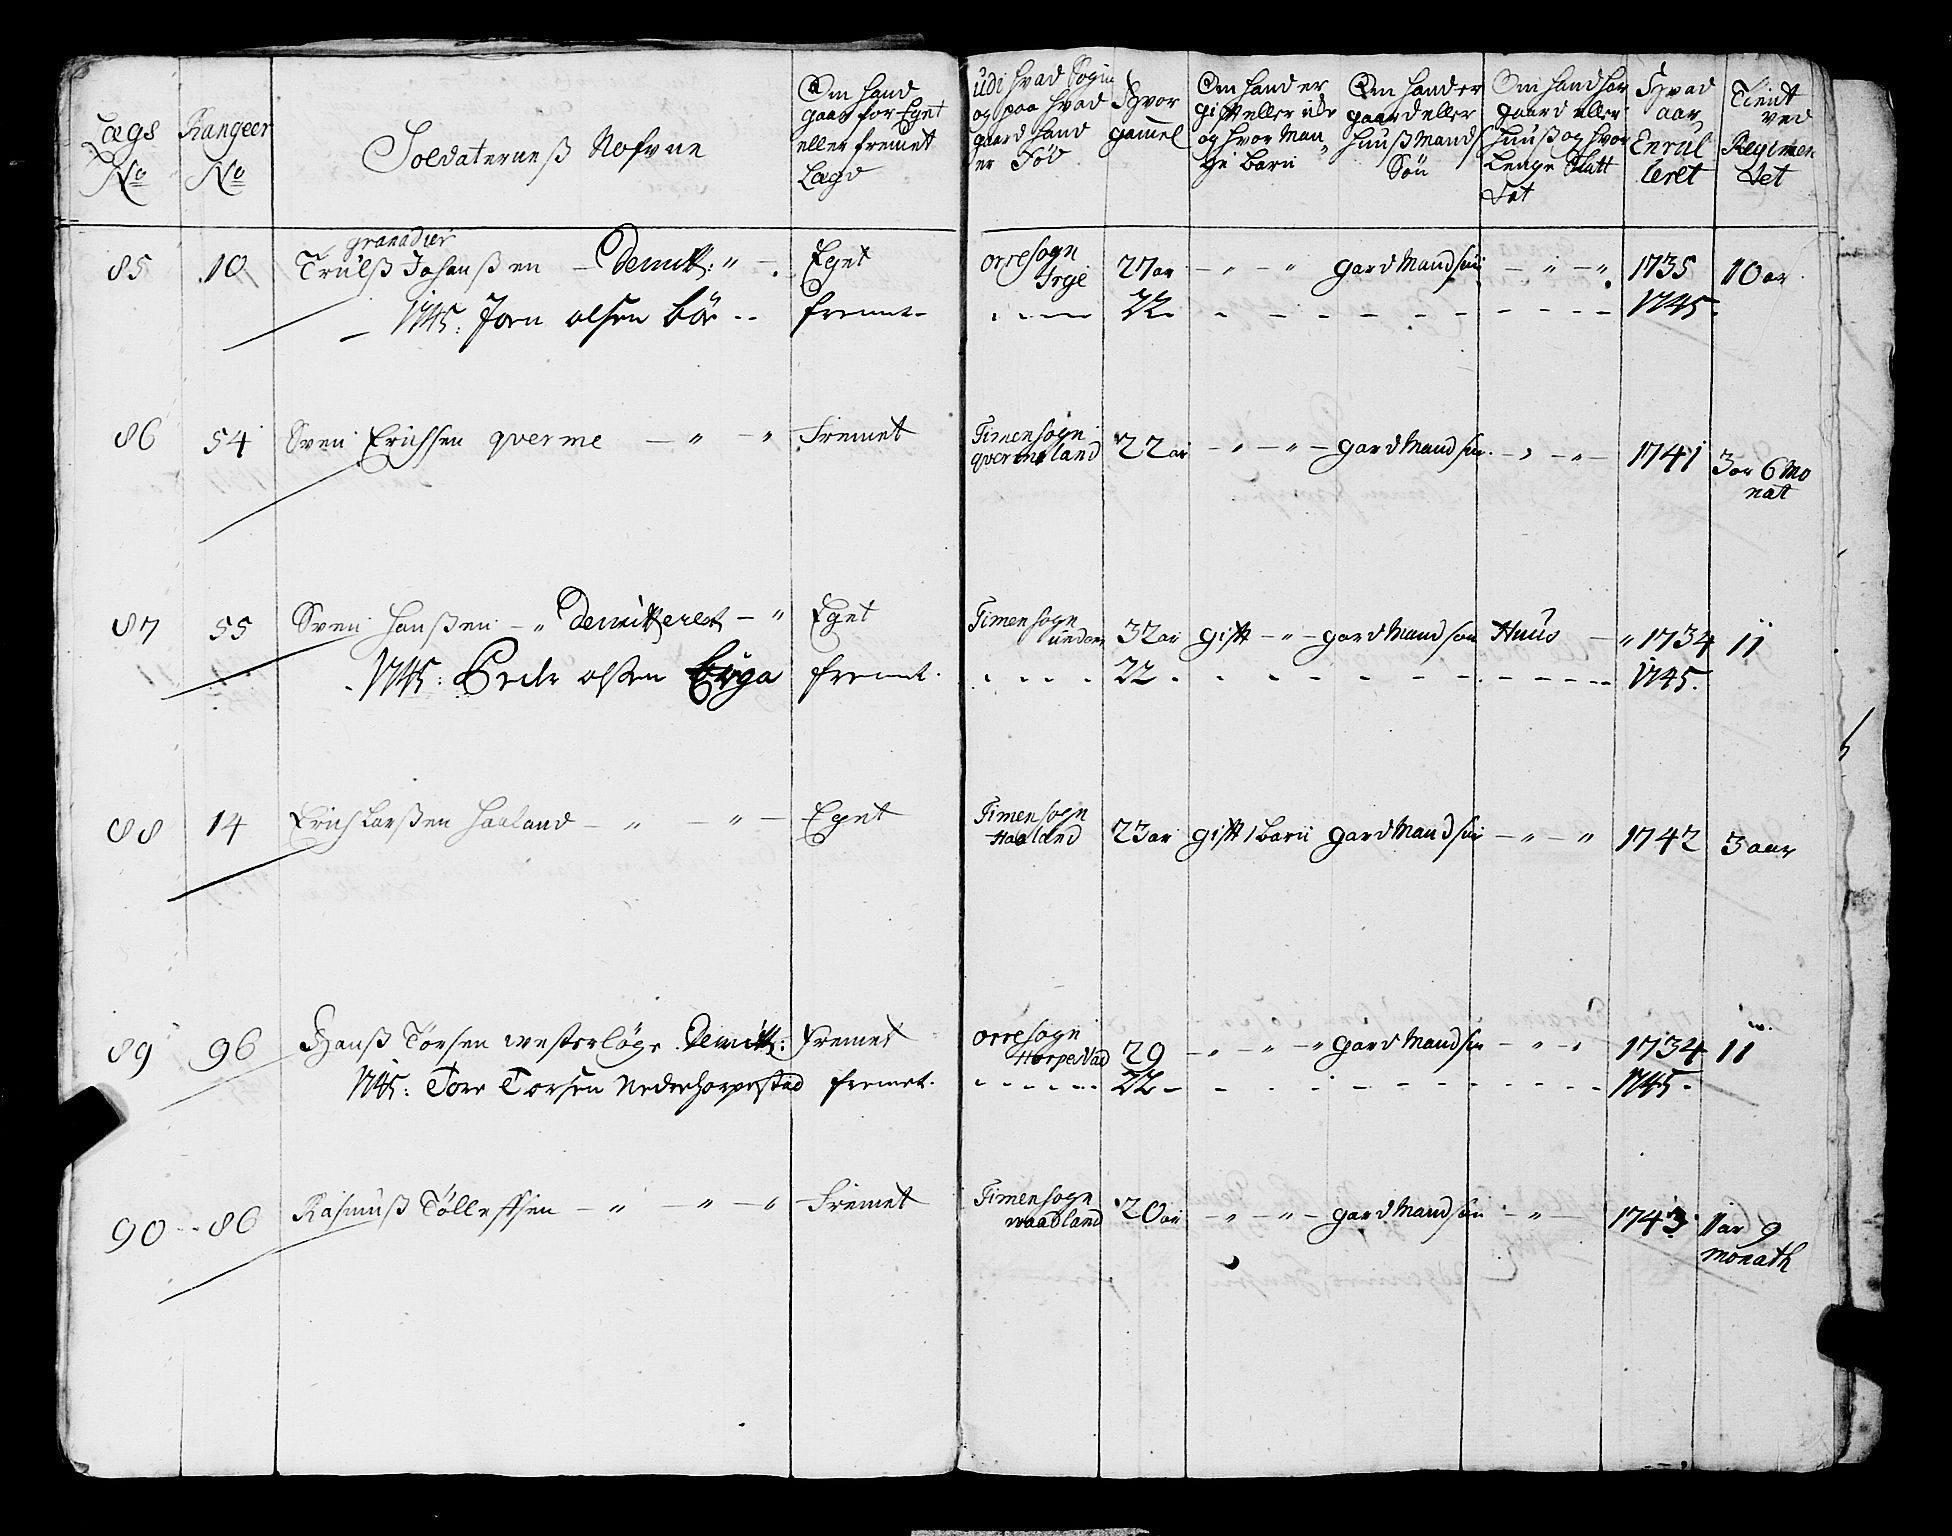 Lægs No
Rangeer No
Soldaterneß Nafvne
Om hand gaar for Eget eller fremet Lægd
udi hvad Sogn og paa hvad gaard hand er Föd
Hvor gamel
Om hand er gift eller ide og hvor Man ge barn
Om hand er gaard eller huuß Mands Sön
Om hand har gaard eller huuß og hvor Lenge Siatt
Hvad aar Enrul leret
Tient ved Regimen tet
granadier
85 10 Trulß Johanßen – Demitt: " – Eget orre sogn Erge 27 ar – " – " gard Mand sön – " – " 1735 10 ar
– 1745: Jorn olsen Böe – – fremt – 22 – 1745.
86 54 Sven Erichsen qverme – " – " Fremet Timen sogn qvermeland 22 ar – " – " – gard Mand sön – " – " – 1741 3 ar 6 Mo nat
87 55 Sven Hanßen – " Demitteret – " Eget Timen sogn undem 32 ar gift – " – gard Mand sön Huus – " 1734 11
1745: Peder olsen Erga fremt. 22 – 1745.
88 14 Erich Larßen Haaland – " – " – Eget Timen sogn Haaland 23 ar gift 1 barn gard Mand sön – " – " 1742 3 aar
89 96 Hanß Torsen westerlöge Demitt: Fremet orre sogn Horpestad 29 – " – " – " gard Mand sön – " – " 1734 11
1745: Tore Torsen Nederhorpestad fremet. 22 – 1745 –
90 86 Rasmuß Tolleffsen – " – " – " Fremet Timen sogn waadland 20 ar – " – " – gard Mand sön – " – 1743 1 ar 9 monath